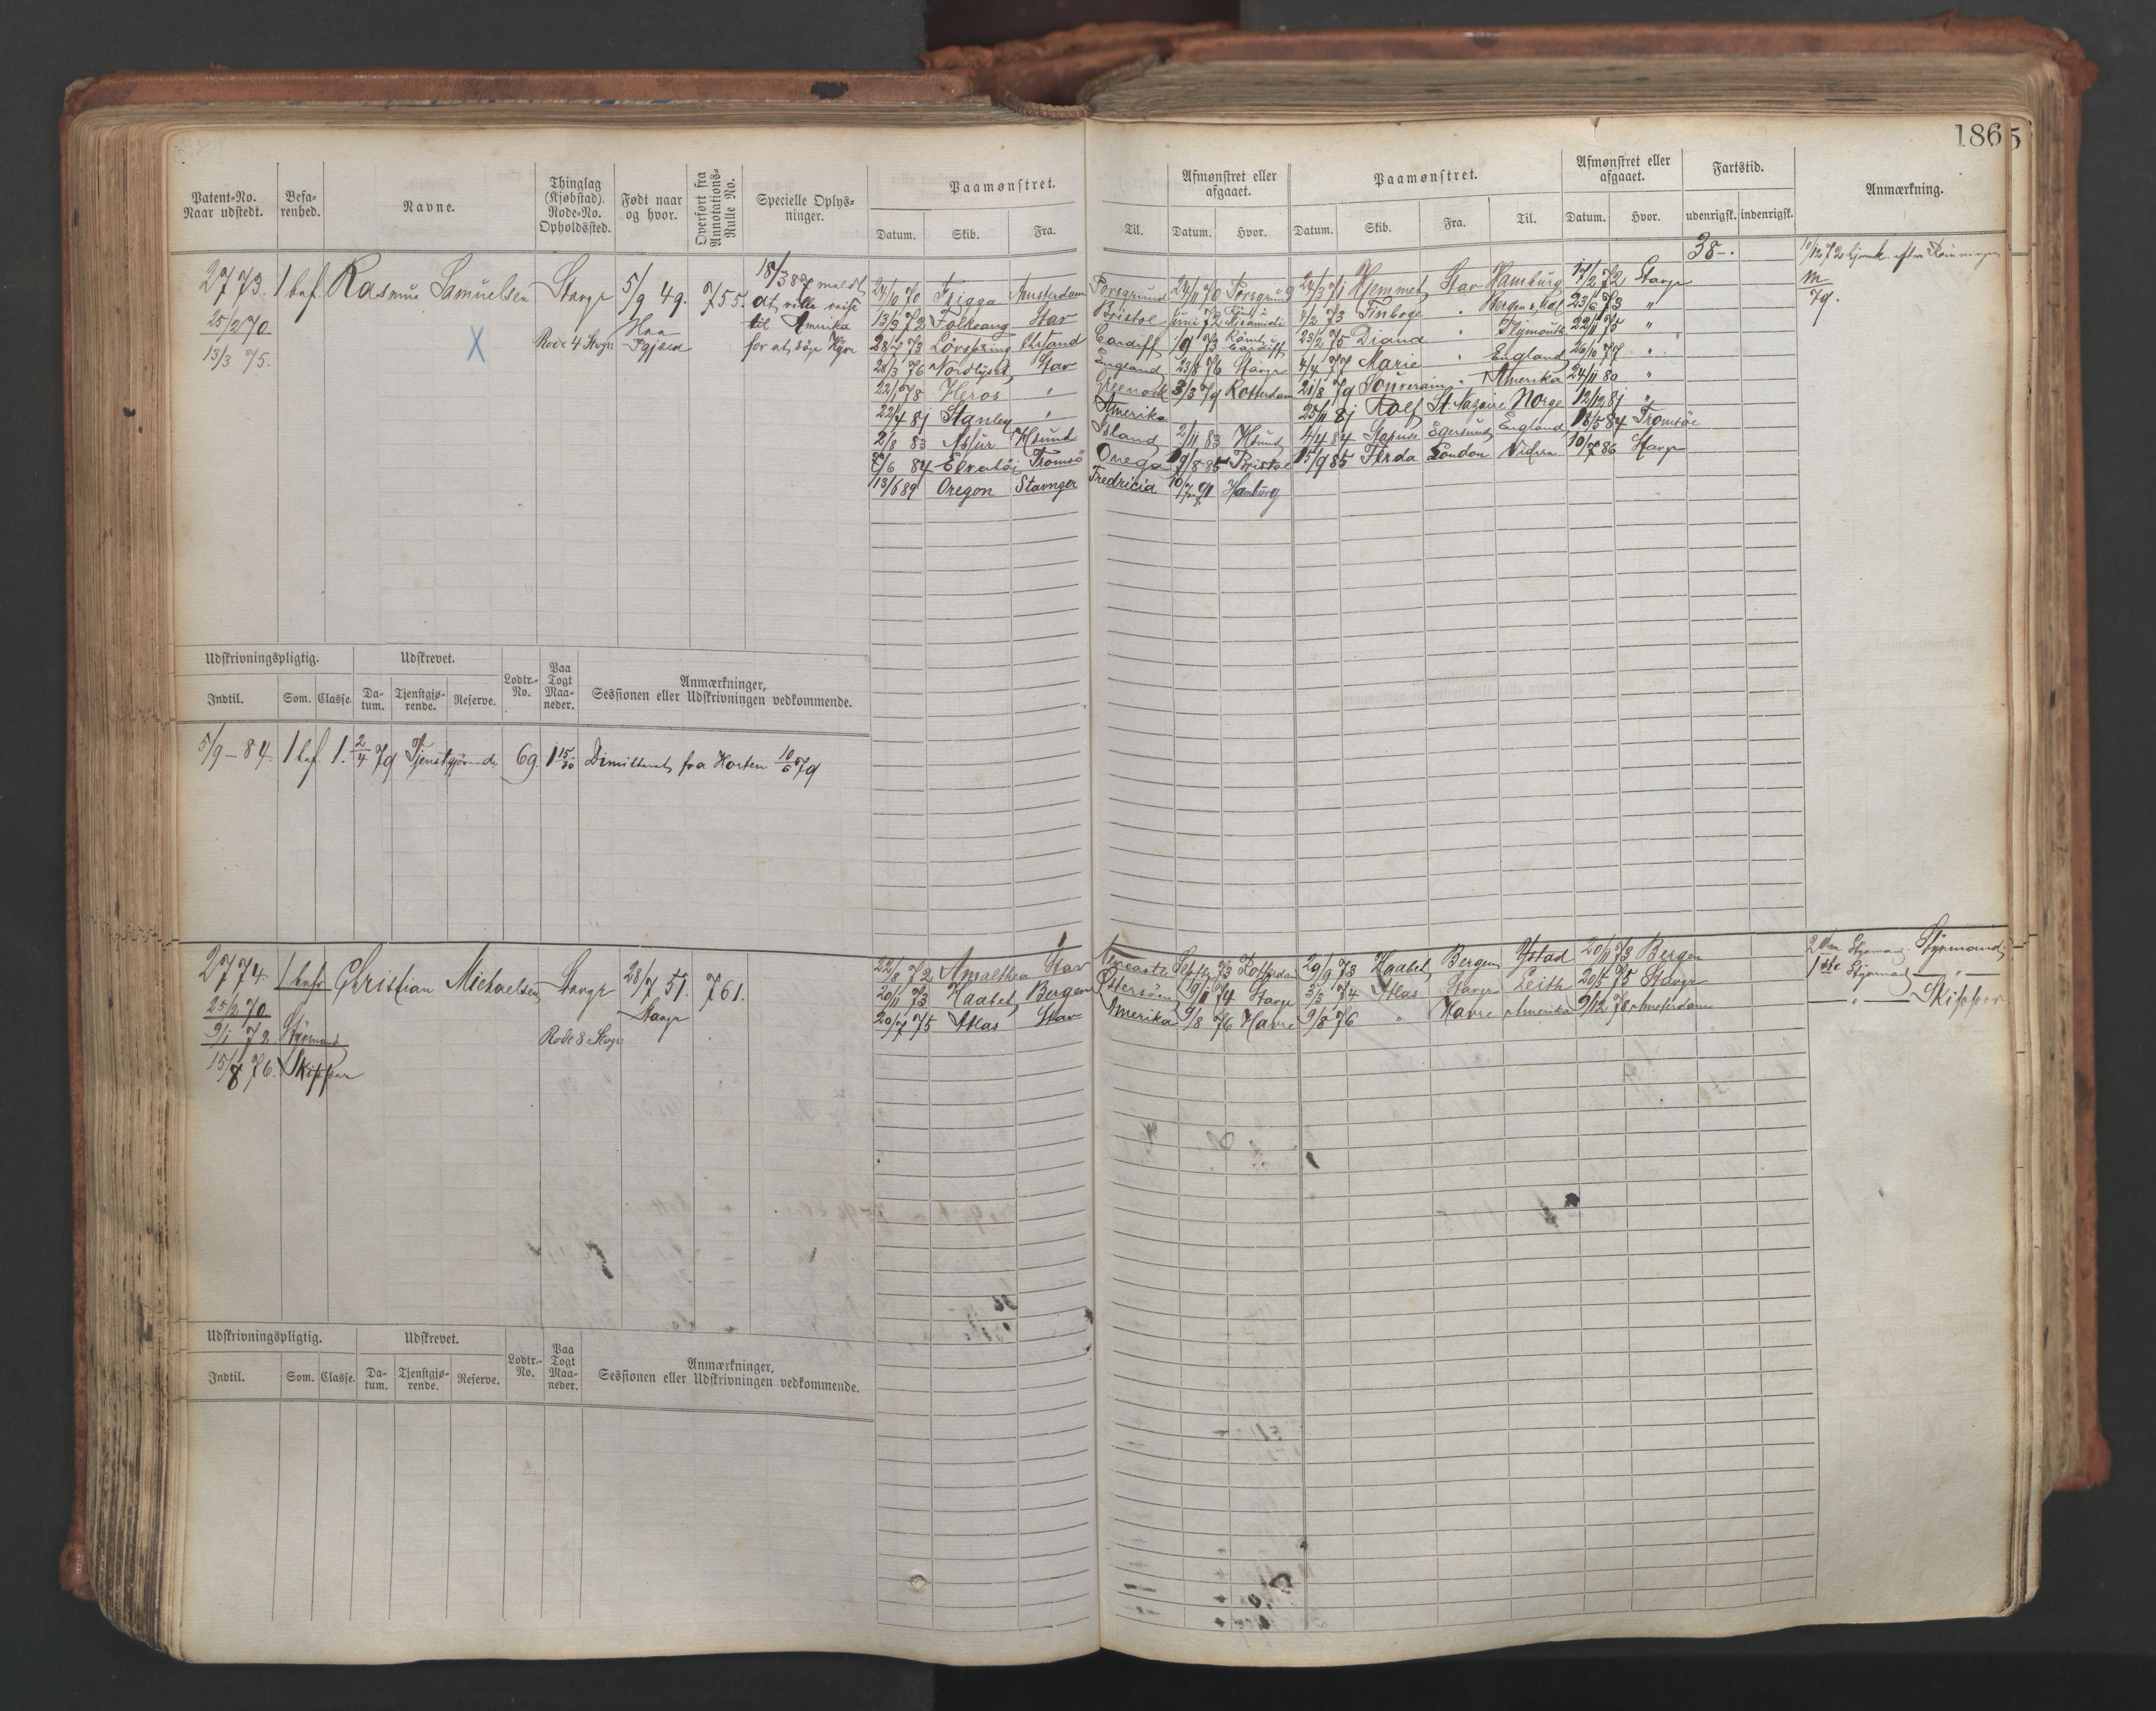 186 5
Patent-No. Naar udstedt. Befarenhed. Navne. Thinglag (Kjøbstad). Rode-No. Opholdssted. Født naar og hvor. Overført fra Annotations-Rulle No. Specielle Oplysninger. Paamønstret. Afmønstret eller afgaaet. Paamønstret. Afmønstret eller afgaaet. Fartstid. Anmærkning.
Datum. Skib. Fra. Til. Datum. Hvor. Datum. Skib. Fra. Til. Datum. Hvor. udenrigsk. indenrigsk.
2773. 1 bef. Rasmus Samuelsen Stavgr 5/9 49. 755. 18/3 87 meldt
25/2 70. at ville reise
13/3 75. Rode 4 Stvgr til Amerika
for at søge Hyre
38-.
24/10 70 Frigga Amsterdam Porsgrund 24/11 70 Porsgrund 24/3 71 Hjemmet Stav Hamburg 17/2 72 Stavgr
13/3 72 Folkvang Stav Bristol Juni 72 4/2 73 Finboge " 23/6 73 "
28/7 73 Løvspring Chrsand Cardiff 19 73 Cardiff 23/2 75 Diana " Plymouth 22/11 75 "
28/3 76 Nordlyset Stav England 23/8 76 Stavgr 4/4 77 Marie " England 26/10 77 "
22/1 78 Heros " Greenock 3/3 79 Rotterdam 21/8 79 Souverain " Amerika 24/11 80 "
22/4 81 Stanley " Amerika 25/11 81 Rolf St. Nazaire Norge 12/12 81 "
2/8 83 Assur Hsund Island 2/11 83 Hsund 4/4 84 Egersund England 18/5 84 Tromsöe
8/6 84 Elvehöi Tromsö Onega 19/8 85 Bristol 15/9 85 Ferda London Viden 10/7 86 Stavgr
13/6 89 Oregon Stavnger Fredricia 10/7 91 Hamburg
Udskrivningspligtig. Udskrevet. Lodtr.-No. Paa Togt Maaneder. Anmærkninger, Sessionen eller Udskrivningen vedkommende.
Indtil. Som. Classe. Datum. Tjenstgjørende. Reserve.
5/9-84. 1 bef. 1. 2/4 79 Tjenstgjørende 69. 1 15/30 Dimitteret fra Horten 10/6 79
2774. 1 bef Christian Michaelsen Stavgr 28/7 51. 761.
25/2 70 Stavgr
9/1 72 Styrmand Rode 8 Stvgr
15/8 76. Skipper
22/8 72 Amalthea Stav Newcastle Septb 73 Rotterdam 29/9 73 Haabet Bergen Ystad 20/11 73 Bergen 2den Styrmand. Styrmand.
20/11 73 Haabet Bergen Østersöen 19/1 74 Stavgr 3/3 74 Atlas Stavgr Leith 20/5 75 Stavgr 1ste Styrmand — " —
20/7 75 Atlas Stav Amerika 9/8 76 Havre 9/8 76 " Havre Amerika 9/12 78 Amsterdam — " — Skipper
Udskrivningspligtig. Udskrevet. Lodtr.-No. Paa Togt Maaneder. Anmærkninger, Sessionen eller Udskrivningen vedkommende.
Indtil. Som. Classe. Datum. Tjenstgjørende. Reserve.